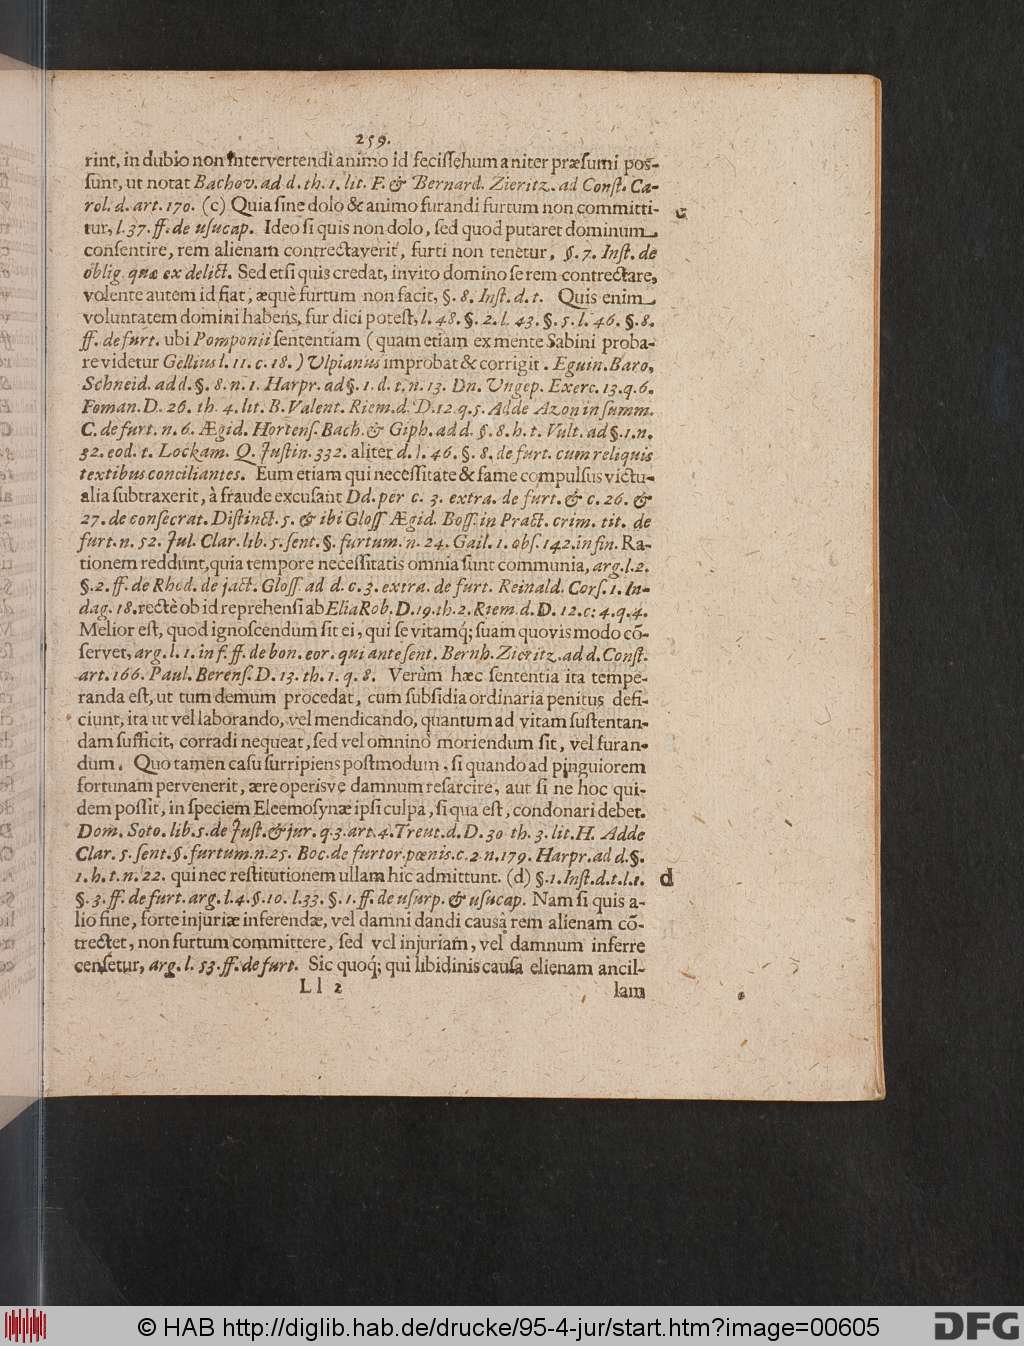 259.
rint, in dubio non intervertendi animo id fecisse humaniter præsumi pos-
sunt, ut notat Bachov. ad d. th. 1. lit. F. & Bernard. Zieritz. ad Const. Ca-
rol. d. art. 170. (c) Quia sine dolo & animo furandi furtum non committi-
tur, l. 37. ff. de usucap. Ideo si quis non dolo, sed quod putaret dominum
consentire, rem alienam contrectaverit, furti non tenetur, §. 7. Inst. de
oblig. quæ ex delict. Sed etsi quis credat, invito domino se rem contrectare,
volente autem id fiat, æquè furtum non facit, §. 8. Inst. d. t. Quis enim
voluntatem domini habens, fur dici potest, l. 48. §. 2. l. 43. §. 5. l. 46. §. 8.
ff. de furt. ubi Pomponii sententiam (quam etiam ex mente Sabini proba-
re videtur Gellius l. 11. c. 18.) Ulpianus improbat & corrigit. Eguin. Baro,
Schneid. ad d. §. 8. n. 1. Harpr. ad §. 1. d. t. n. 13. Dn. Ungep. Exerc. 13. q. 6.
Foman. D. 26. th. 4. lit. B. Valent. Riem. d. D. 12. q. 5. Adde Azon in summ.
C. de furt. n. 6. Ægid. Hortens. Bach. & Giph. ad d. §. 8. h. t. Vult. ad §. 1. n.
32. eod. t. Lockam. Q. Justin. 332. aliter d. l. 46. §. 8. de furt. cum reliquis
textibus conciliantes. Eum etiam qui necessitate & fame compulsus victu-
alia subtraxerit, à fraude excusant Dd. per c. 3. extra. de furt. & c. 26. &
27. de consecrat. Distinct. 5. & ibi Gloss. Ægid. Boss. in Pract. crim. tit. de
furt. n. 52. Jul. Clar. lib. 5. sent. §. furtum. n. 24. Gail. 1. obs. 142. in fin. Ra-
tionem reddunt, quia tempore necessitatis omnia sunt communia, arg. l. 2.
§. 2. ff. de Rhod. de jact. Gloss. ad d. c. 3. extra. de furt. Reinald. Cors. 1. In-
dag. 18. rectè ob id reprehensi ab Elia Rob. D. 19. th. 2. Riem. d. D. 12. c: 4. q. 4.
Melior est, quod ignoscendum sit ei, qui se vitamq́; suam quovis modo cõ-
servet, arg. l. 1. in f. ff. de bon. eor. qui ante sent. Bernh. Zieritz. ad d. Const.
art. 166. Paul. Berens. D. 13. th. 1. q. 8. Verùm hæc sententia ita tempe-
randa est, ut tum demum procedat, cum subsidia ordinaria penitus defi-
ciunt, ita ut vel laborando, vel mendicando, quantum ad vitam sustentan-
dam sufficit, corradi nequeat, sed vel omnino moriendum sit, vel furan-
dum. Quo tamen casu surripiens postmodum, si quando ad pinguiorem
fortunam pervenerit, ære operisve damnum resarcire, aut si ne hoc qui-
dem possit, in speciem Eleemosynæ ipsi culpa, si qua est, condonari debet.
Dom. Soto. lib. 5. de Just. & jur. q. 3. art. 4. Treut. d. D. 30 th. 3. lit. H. Adde
Clar. 5. sent. §. furtum. n. 25. Boc. de furtor. pœnis. c. 2 n. 179. Harpr. ad d. §.
1. h. t. n. 22. qui nec restitutionem ullam hic admittunt. (d) §. 1. Inst. d. t. l. 1.
§. 3. ff. de furt. arg. l. 4. §. 10. l. 33. §. 1. ff. de usurp. & usucap. Nam si quis a-
lio fine, forte injuriæ inferendæ, vel damni dandi causâ rem alienam cõ-
trectet, non furtum committere, sed vel injuriam, vel damnum inferre
censetur, arg. l. 53. ff. de furt. Sic quoq́; qui libidinis causa elienam ancil-
Ll 2 lam
c
d
© HAB http://diglib.hab.de/drucke/95-4-jur/start.htm?image=00605
DFG